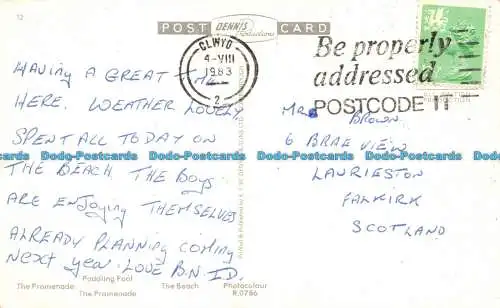 12
POST DENNIS Productions CARD
CLWYD
4-VIII
1983
2
Be properly
addressed
POSTCODE IT
HAVING A GREAT TIME
HERE. WEATHER LOVELY
SPENT ALL TODAY ON
THE BEACH THE BOYS
ARE ENJOYING THEMSELVES
ALREADY PLANNING COMING
NEXT YEAR. LOVE B.N I.D.
MRS BROWN.
6 BRAE VIEW
LAURIESTON
FALKIRK
SCOTLAND
Paddling Pool
The Promenade The Beach Photocolour
The Promenade R.0786
Dodo-Postcards Dodo-Postcards Dodo-Postcards Dodo-Postcards Dodo-Postcards